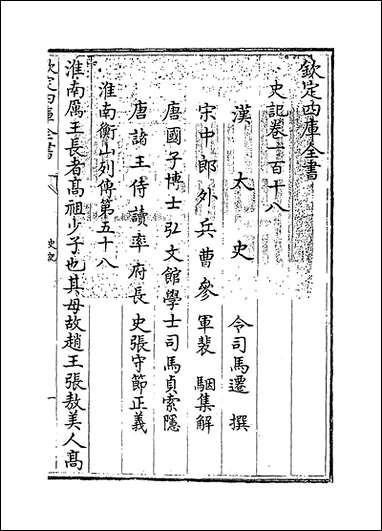 欽定四庫全書
史記卷一百十八
漢太史令司馬遷撰
宋中郎外兵曹參軍裴駰集解
唐國子博士弘文館學士司馬貞索隱
唐諸王侍讀率府長史張守節正義
淮南衡山列傳第五十八
淮南厲王長者高祖少子也其母故趙王張敖美人高
欽定四庫全書
史記
一